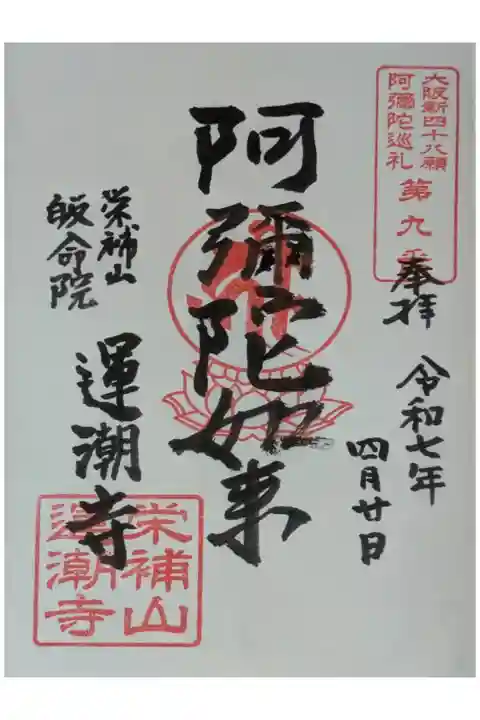 大阪新四十八願
阿彌陀巡礼
第九
奉拝
令和七年
四月廿日
阿彌陀如来
栄補山
皈命院
運潮寺
栄補山
運潮寺